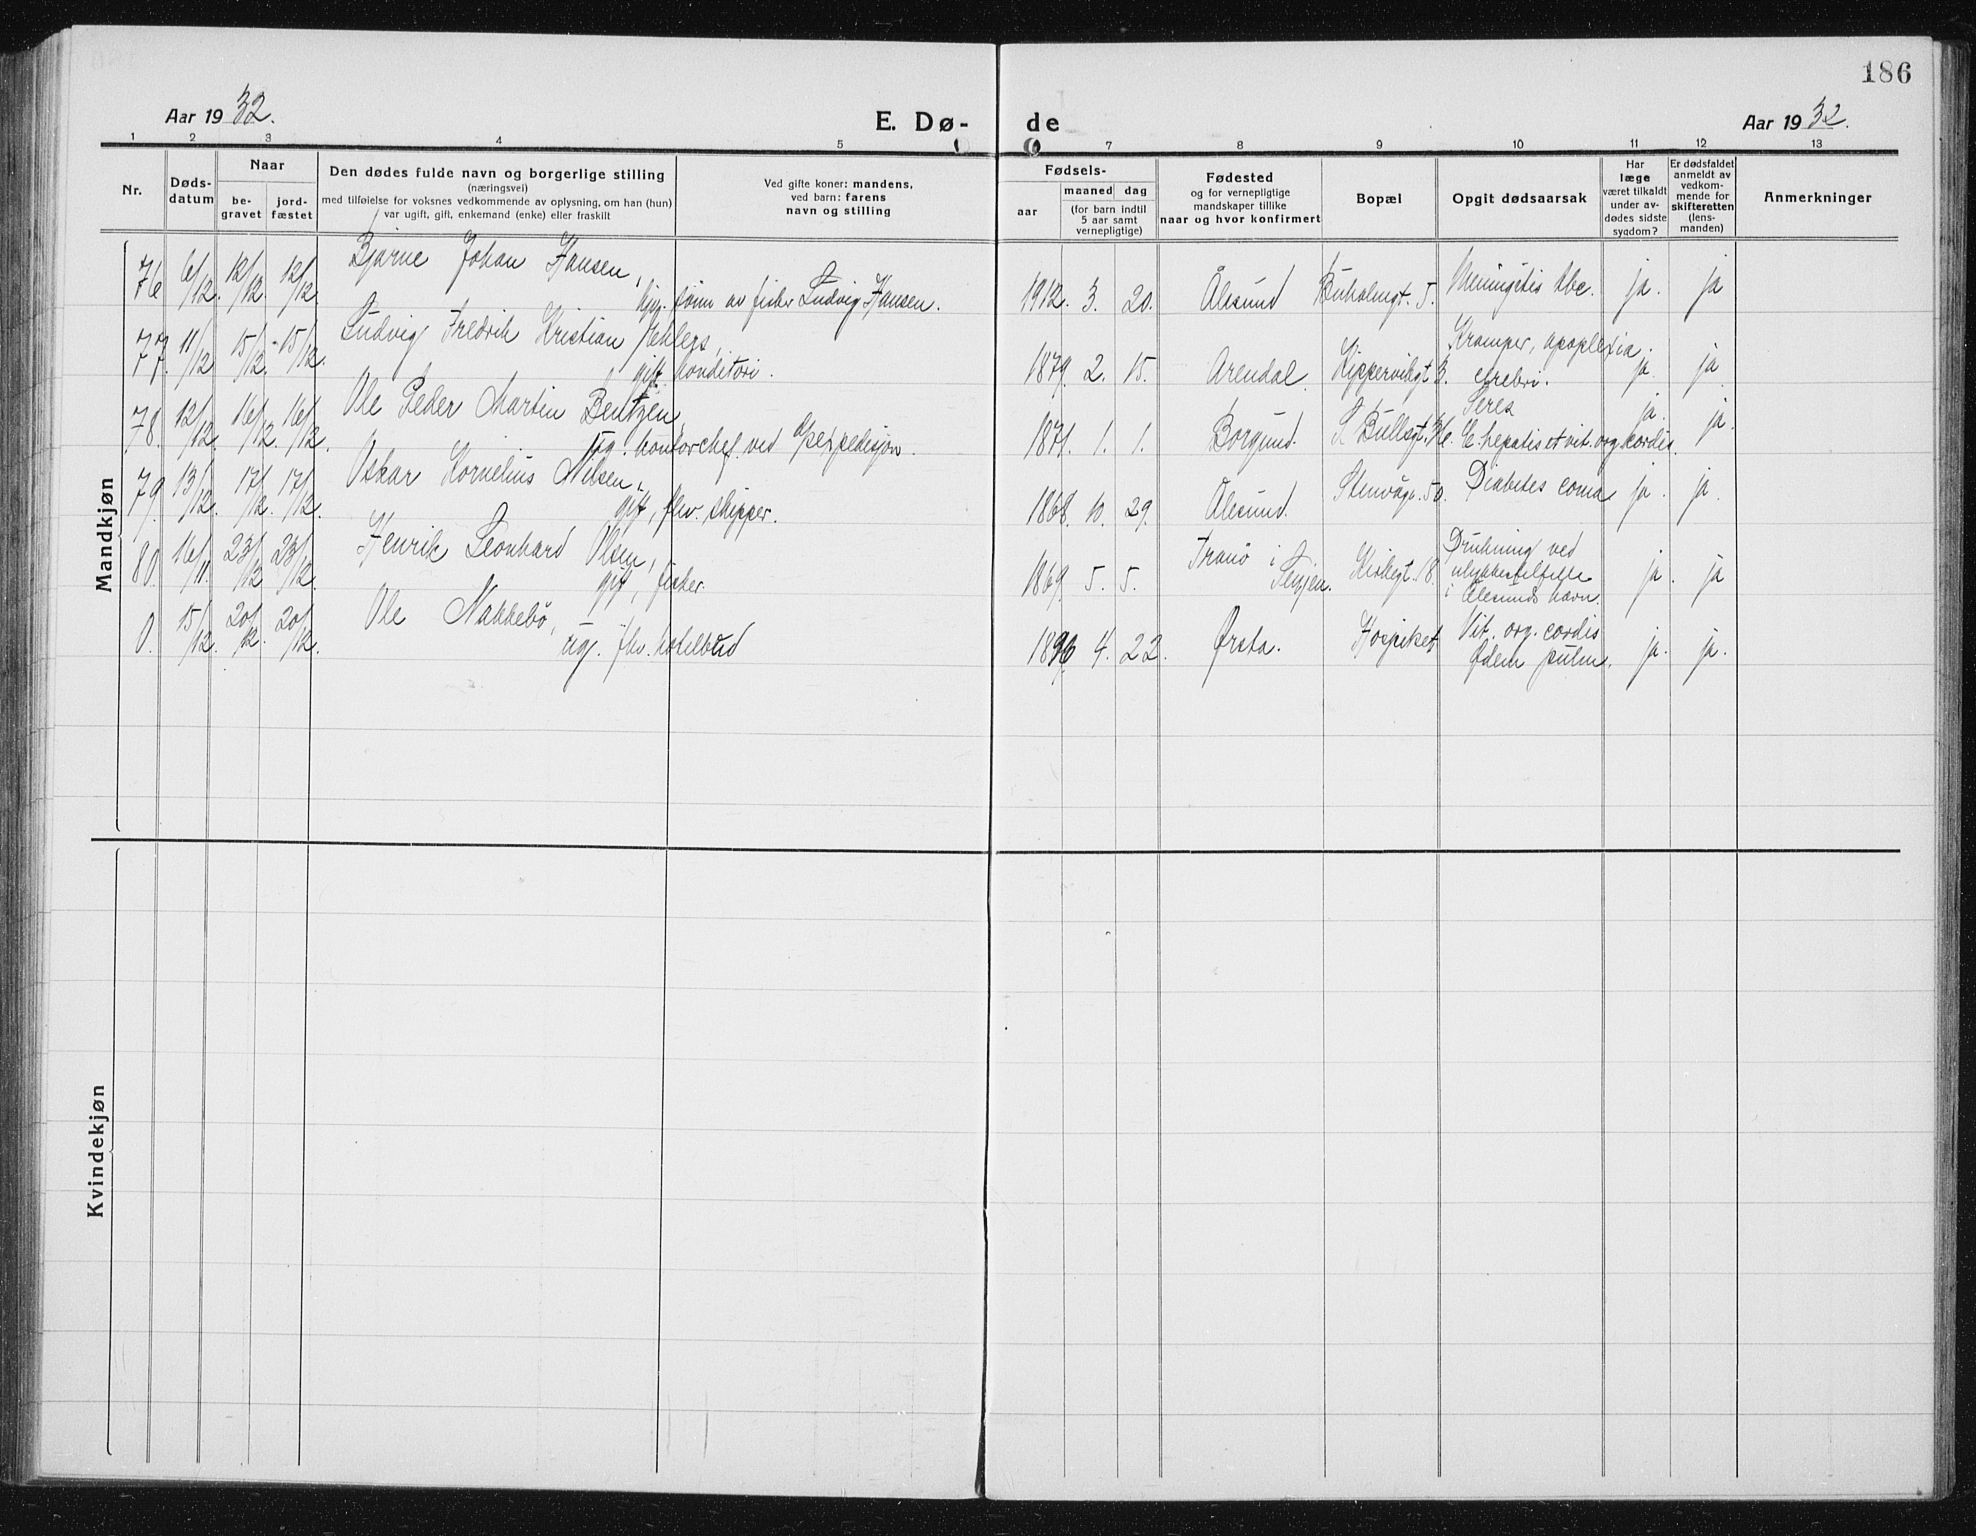 186
Aar 1932.
E. Dø-
de
Aar 1932.
1 2 3 4 5 6 7 8 9 10 11 12 13
Nr.
Døds-
datum
Naar
be-
gravet
jord-
fæstet
Den dødes fulde navn og borgerlige stilling
(næringsvei)
med tilføielse for voksnes vedkommende av oplysning, om han (hun)
var ugift, gift, enkemand (enke) eller fraskilt
Ved gifte koner: mandens,
ved barn: farens
navn og stilling
Fødsels-
aar
maaned
dag
(for barn indtil
5 aar samt
vernepligtige)
Fødested
og for vernepligtige
mandskaper tillike
naar og hvor konfirmert
Bopæl
Opgit dødsaarsak
Har
læge
været tilkaldt
under av-
dødes sidste
sygdom?
Er dødsfaldet
anmeldt av
vedkom-
mende for
skifteretten
(lens-
manden)
Anmerkninger
Mandkjøn
76 6/12. 12/12 12/12 Bjarne Johan Hansen,
sønn av fisker Ludvig Hansen. 1912. 3. 20. Ålesund Buholmgt. 5. Meningitis tbc. ja. ja
77. 11/12 15/12. 15/12. Ludvig Fredrik Kristian Jehlers,
gift, konditori. 1879. 2. 15. Arendal Kippervikgt 3. Kramper, apoplexia
cerebri. ja. ja
78. 12/12. 16/12 16/12. Ole Peder Martin Bentzen,
ug. kontorchef ved 1871. 1. 1. Borgund. Bullsgt. hepatis et vit. org. cordis. ja. ja.
79. 13/12. 17/12. 17/12. Oskar Kornelius Nilsen,
gift, fhv. skipper. 1868. 10. 29. Ålesund. Stenvåg. 50. Diabetes coma ja. ja.
80. 16/11. 23/12 23/12. Henrik Leonhard Olsen,
gift, fisker. 1869. 5. 5. Tranø i
Senjen. Kirkegt. 18. Drukning ved
ulykkestilfelle
i Ålesunds havn. ja. ja
0. 15/12. 20/12. 20/12. Ole Nakkebø,
ug. fhv. hotelbud 1896 4. 22. Ørsta. Hospitset Vit. org. cordis
Ødem pulm. ja. ja.
Kvindekjøn